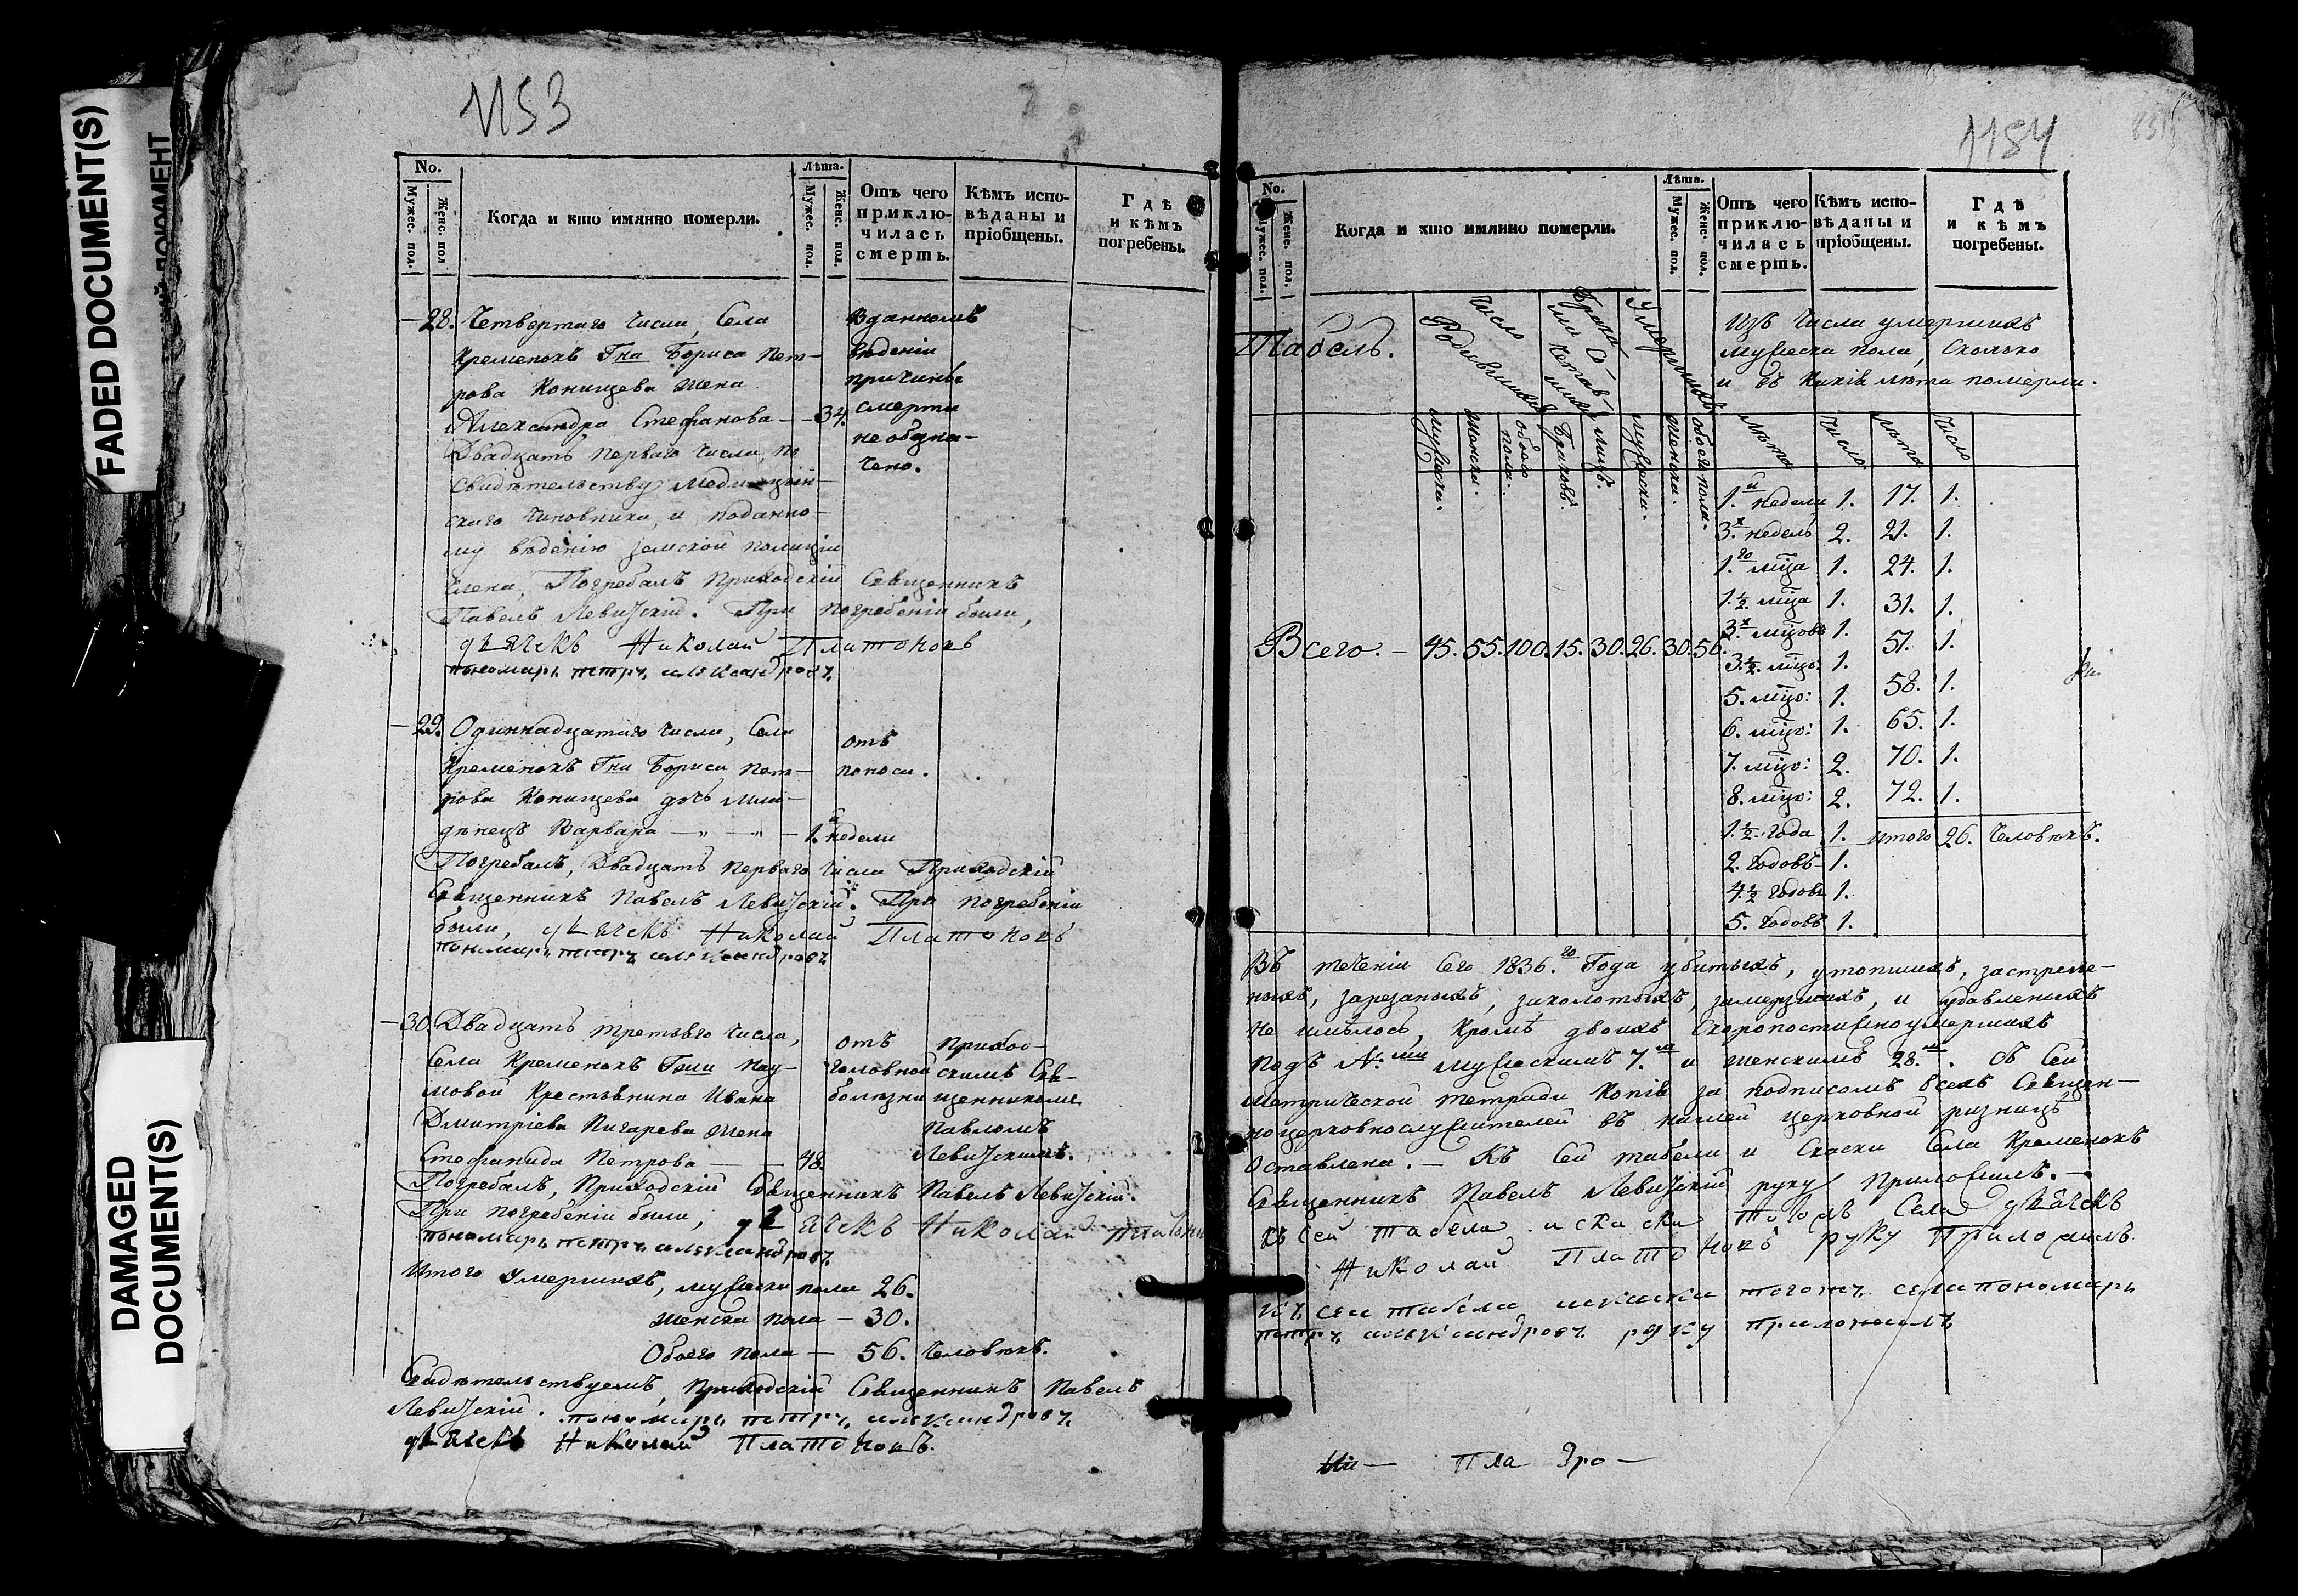 FADED DOCUMENT(S)
DAMAGED
DOCUMENT(S)
1153
No.
Мужес. пол.
Женс. пол
Когда и кто имянно померли.
Лѣта.
Мужес. пол.
Женс. пол.
Отъ чего
приклю-
чилась
смерть.
Кѣмъ испо-
вѣданы и
пріобщены.
Гдѣ
и кѣмъ
погребены.
28. Четвертаго числа, Села
Кременокъ Гна Бориса Пет-
рова Конищева жена
Александра Стефанова — 34.
Двадцать перваго числа, по
свидѣтельству медицын-
скаго чиновника, и поданно-
му вѣденію земской полиціи
члена, Погребалъ Приходскій Священникъ
Павелъ Левитскій. При погребеніи были,
дьячекъ Николай Платоновъ
пономарь петръ александровъ
Вданномъ
вѣденіи
причины
смерти
не обзна-
чено.
29. Одиннадцатаго числа, Села
Кременокъ Гна Бориса Пет-
рова Конищева дочь мла-
дѣнецъ Варвара — „ — „ — 1.й недели
отъ
поноса.
Погребалъ, Двадцать перваго числа Приходскій
Священникъ Павелъ Левитскій. При погребеніи
были, дьячекъ Николай Платоновъ
пономарь петръ александровъ
30. Двадцать третьяго числа,
Села Кременокъ Гжи Нау-
мовой Крестьянина Ивана
Дмитріева Пигарева жена
Стефанида Петрова — 48.
отъ
головной
болезни
Приход-
скимъ Свя-
щенникомъ
Павломъ
Левитскимъ.
Погребалъ, Приходскій Священникъ Павелъ Левитскій.
При погребеніи были, дьячекъ Николай Платоновъ
пономарь петръ александровъ
Итого умершихъ, мужеска пола 26.
женска пола — 30.
Обоего пола — 56. Человѣкъ.
Свидѣтельствуемъ, Приходскій Священникъ Павелъ
Левитскій. пономарь петръ александровъ
дьячекъ Николай Платоновъ.
1184
No.
Мужес. пол.
Женс. пол.
Когда и кто имянно померли.
Лѣта.
Мужес. пол.
Женс. пол.
Отъ чего
приклю-
чилась
смерть.
Кѣмъ испо-
вѣданы и
пріобщены.
Гдѣ
и кѣмъ
погребены.
Табель.
Число
Родившихся
Умершихъ
Изъ числа умершихъ
мужеска пола, сколько
и въ какія лѣта померли.
мужеска.
женска.
обоего
пола.
Браковъ.
лицъ.
мужеска.
женска.
обоего пола.
лѣта
число
лѣта
число
1.й недели 1. 17. 1.
3.х недель 2. 21. 1.
1.го мца 1. 24. 1.
1.½ мца 1. 31. 1.
3.х мцовъ 1. 51. 1.
3.½ мцо: 1. 58. 1.
5. мцо: 1. 65. 1.
6. мцо: 1. 70. 1.
7. мцо: 2. 72. 1.
8. мцо: 2.
1.½ года 1. итого 26. Человѣкъ.
2. годовъ 1.
4.½ годовъ 1.
5. годовъ 1.
Всего. — 45. 55. 100. 15. 30. 26. 30. 56.
Въ теченіи Сего 1836.го Года убитыхъ, утопшихъ, застреле-
ныхъ, зарезаныхъ, заколотыхъ, замерзшихъ, и удавленыхъ
не имѣлось, кромѣ двоихъ скоропостижно умершихъ
подъ №.ми мужескимъ 7.м и женскимъ 28.м. Съ Сей
метрической тетради копія за подписомъ всехъ Священ-
ноцерковнослужителей въ нашей церковной ризницѣ
оставлена. — Къ Сей табели и Скаски Села Кременокъ
Священникъ Павелъ Левитскій руку приложилъ. —
къ сей табели и скаски тогожъ Села дьячекъ
Николай Платоновъ руку Приложилъ.
къ сеи табели искаски тогожъ села пономарь
петръ александровъ руку приложилъ